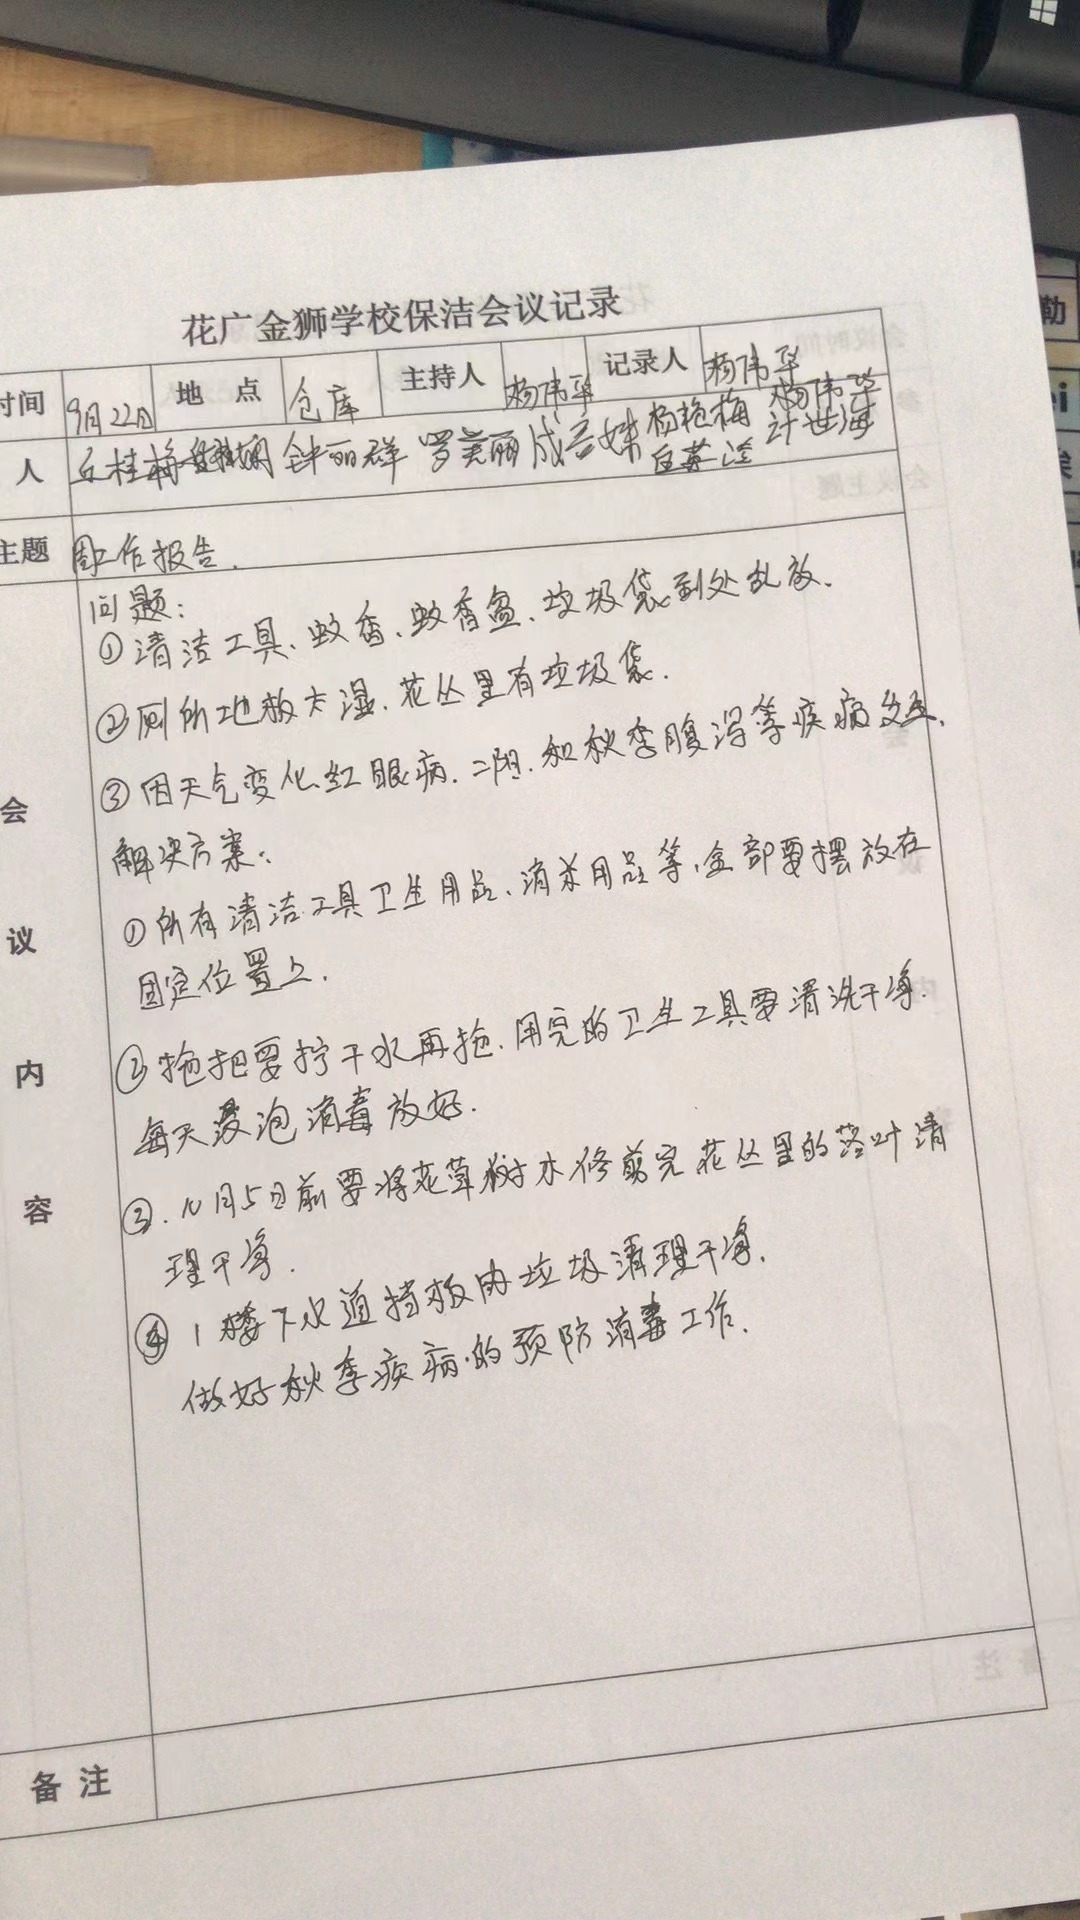 花广金狮学校保洁会议记录
时间 9月22日 地 点 仓库 主持人 杨伟华 记录人 杨伟华
人 丘桂 钟丽群 罗美丽 杨艳梅 杨伟华
计世海
主题 周工作报告.
问题:
①清洁工具、蚊香、蚊香盒、垃圾袋到处乱放.
②厕所地板太湿、花丛里有垃圾袋.
③因天气变化红眼病.二阳.和秋季腹泻等疾病
解决方案:
①所有清洁工具卫生用品、消杀用品等,全部要摆放在
固定位置上.
②拖把要拧干水再拖、用完的卫生工具要清洗干净.
每天浸泡消毒放好.
③.10月5日前要将花草树木修剪完花丛里的落叶清
理干净.
④1楼下水道挡板内垃圾清理干净.
做好秋季疾病的预防消毒工作.
会
议
内
容
备 注
勒